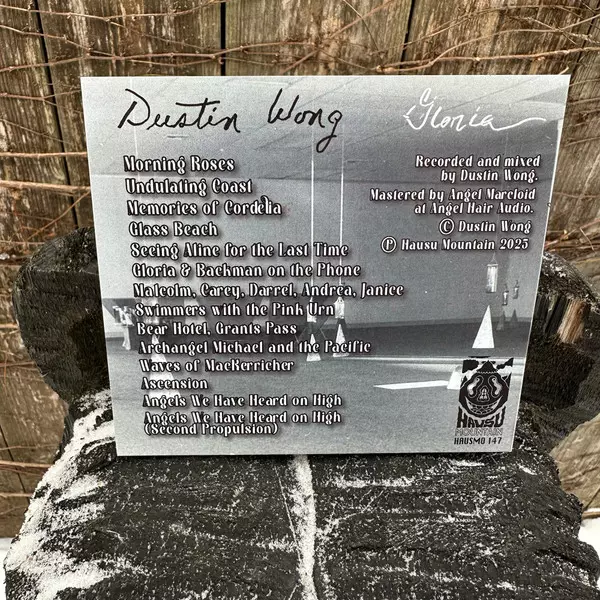 Dustin Wong
Gloria
Morning Roses
Undulating Coast
Memories of Cordelia
Glass Beach
Seeing Aline for the Last Time
Gloria & Bachman on the Phone
Malcolm, Carey, Darrel, Andrea, Janice
Swimmers with the Pink Urn
Bear Hotel, Grants Pass
Archangel Michael and the Pacific
Waves of MacKerricher
Ascension
Angels We Have Heard on High
Angels We Have Heard on High
(Second Propulsion)
Recorded and mixed
by Dustin Wong.
Mastered by Angel Marcloid
at Angel Hair Audio.
© Dustin Wong
℗ Hausu Mountain 2025
HAUSU
MOUNTAIN
HAUSMO 147